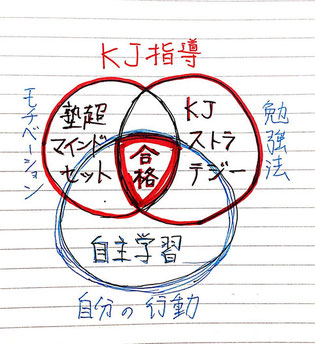 KJ指導
モチベーション
塾超
マインド
セット
KJ
ストラ
テジー
勉強法
合格
自主学習
自分の行動